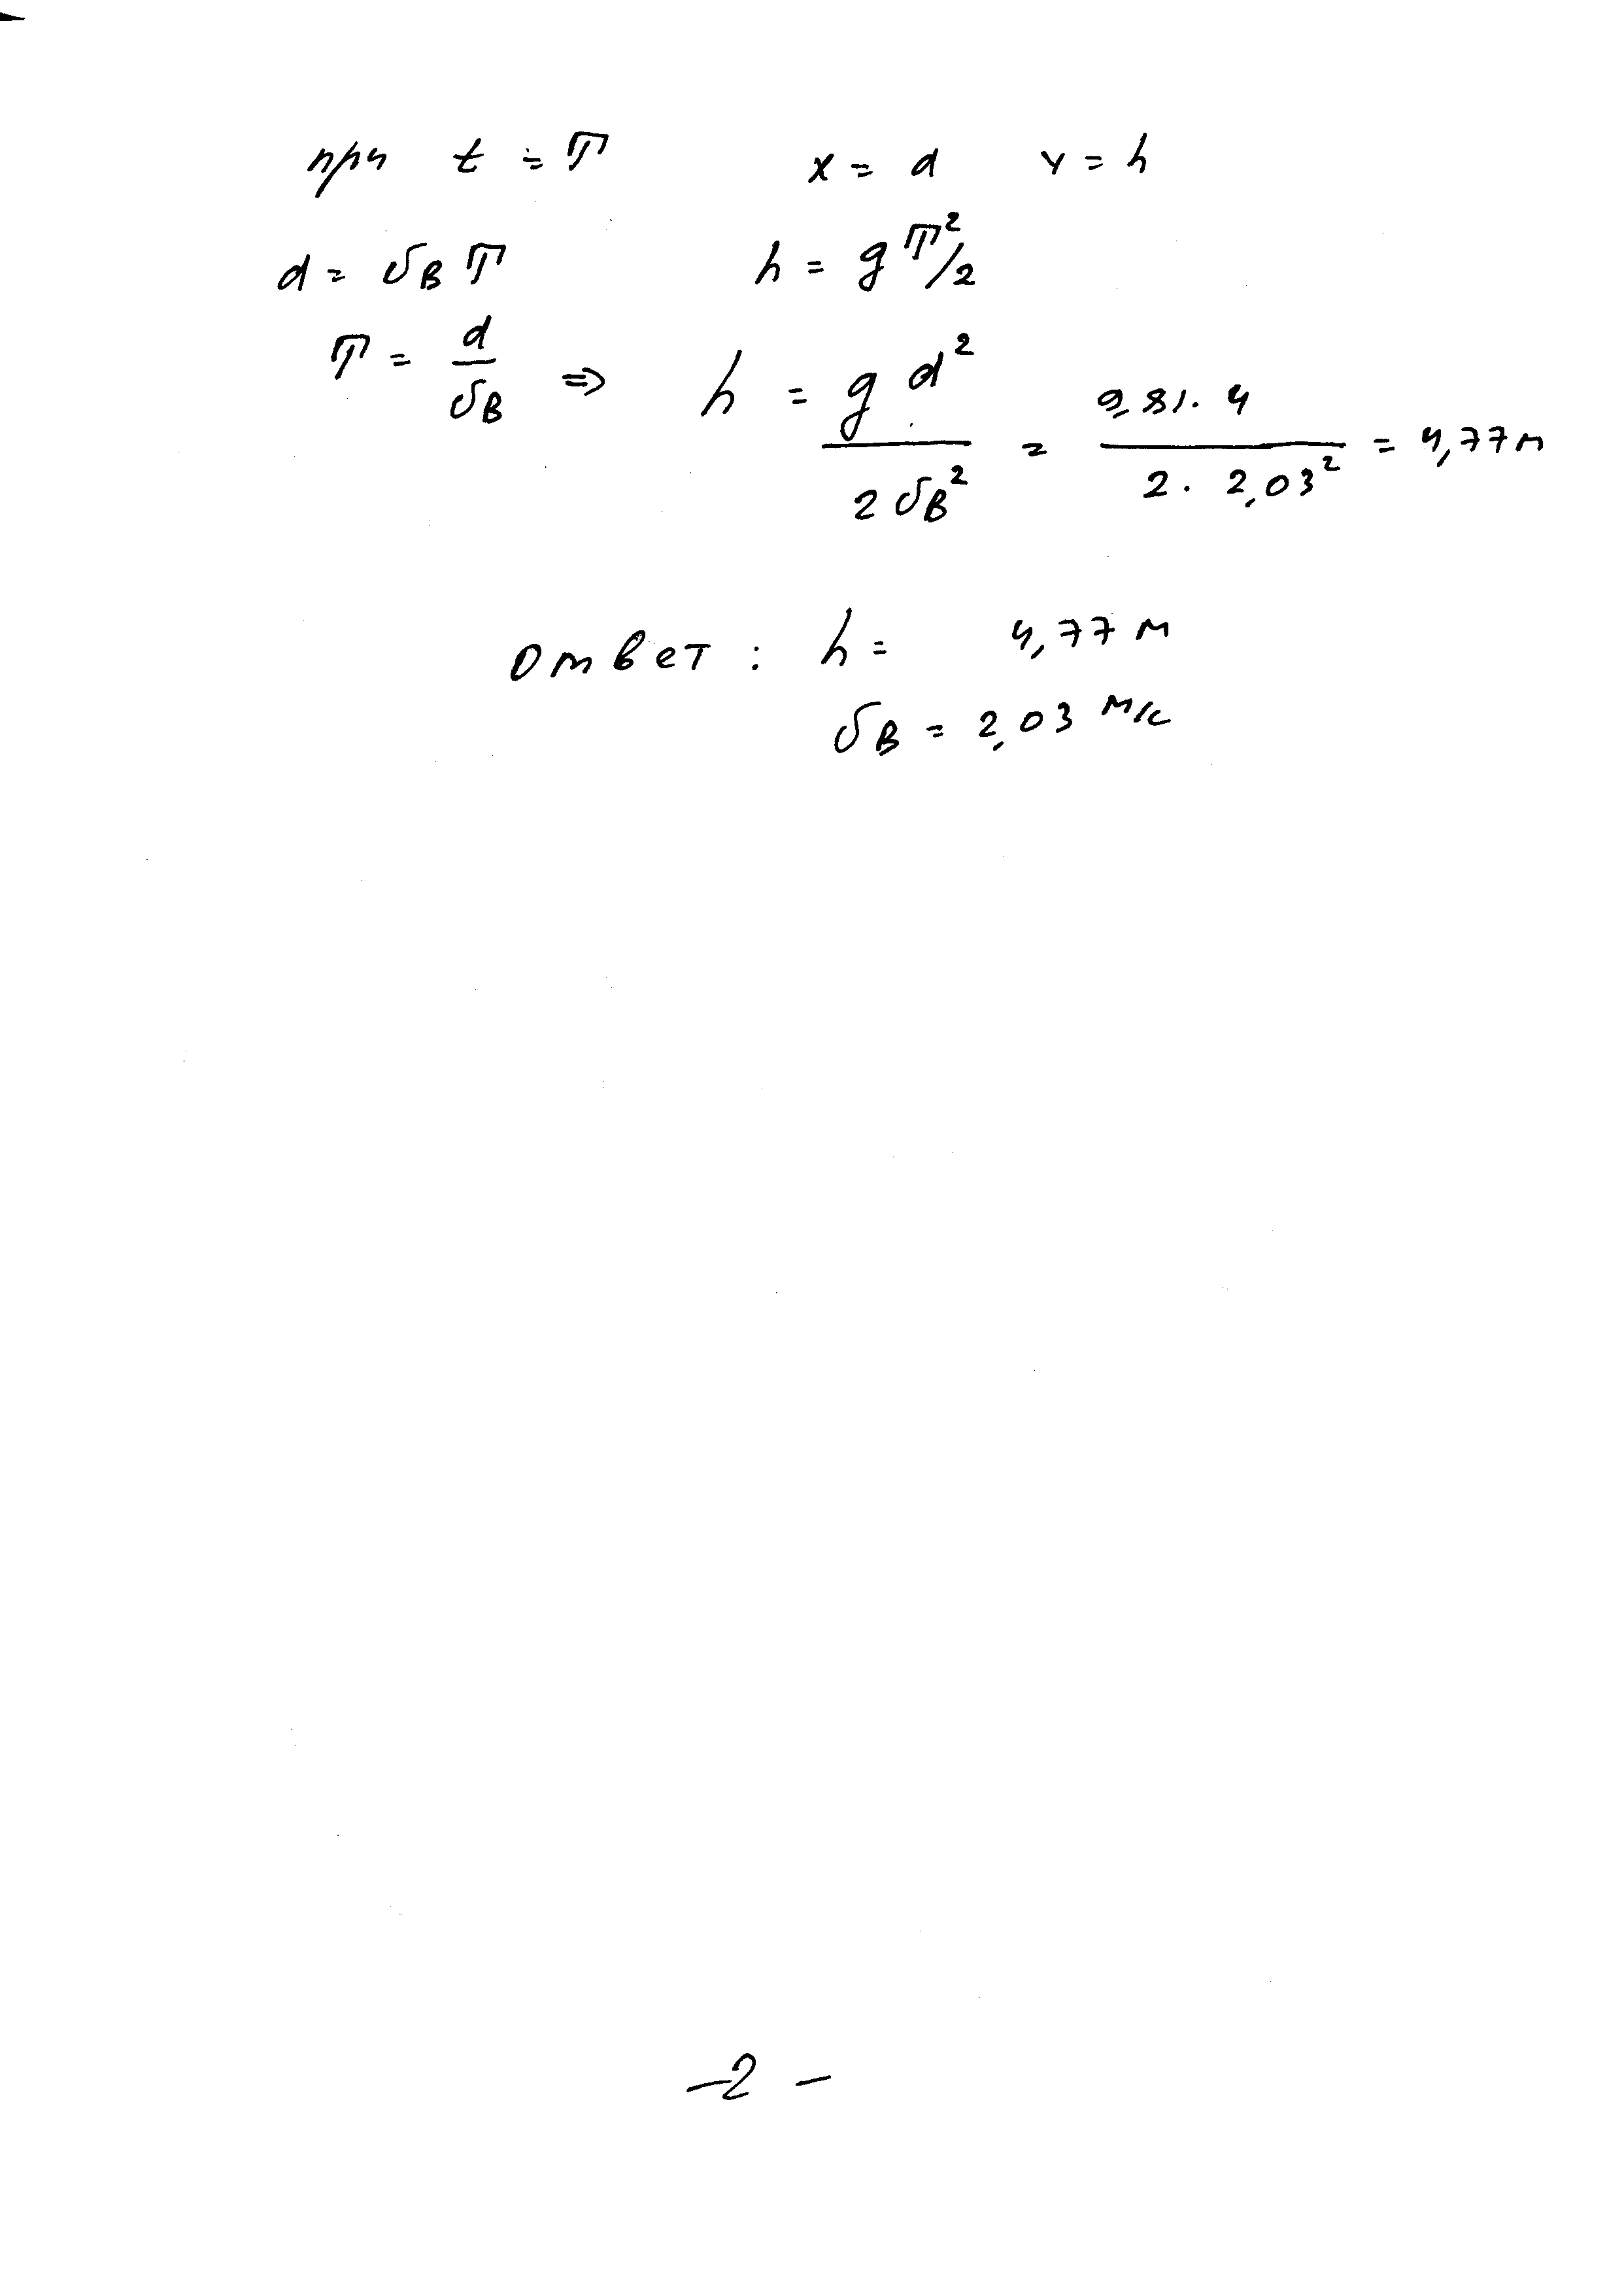 при t = T x = d y = h
d = υB T h = g T²/2
T = d/υB ⇒ h = g d²/2υB² = 9,81·4/2·2,03² = 4,77м
Ответ: h = 4,77 м
υB = 2,03 м/с
-2-